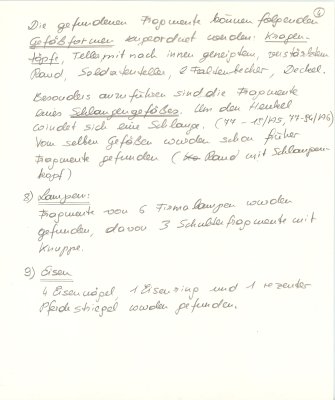 6
Die gefundenen Fragmente können folgenden
Gefäßformen zugeordnet werden: Kragen-
töpfe, Teller mit nach innen geneigtem, verstärktem
Rand, Soldatenteller, 2 Faltenbecher, Deckel.
Besonders anzuführen sind die Fragmente
eines Schlangengefäßes. Um den Henkel
windet sich eine Schlange. (77-15/175, 77-96/176)
Vom selben Gefäß wurden schon früher
Fragmente gefunden (Rand mit Schlangen-
kopf)
8) Lampen:
Fragmente von 6 Firmalampen wurden
gefunden, davon 3 Schulterfragmente mit
Knuppe.
9) Eisen
4 Eisennägel, 1 Eisenring und 1 rezenter
Pferdestriegel wurden gefunden.